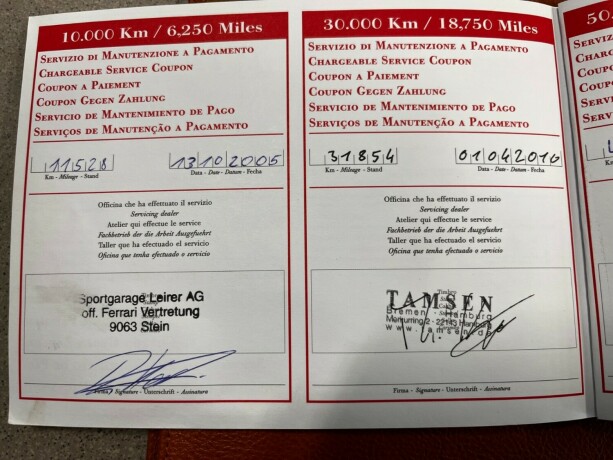 10.000 Km / 6,250 Miles
Servizio di Manutenzione a Pagamento
Chargeable Service Coupon
Coupon a Paiement
Coupon Gegen Zahlung
Servicio de Mantenimiento de Pago
Serviços de Manutenção a Pagamento
11528 13102005
Km - Mileage - Stand Data - Date - Datum - Fecha
Officina che ha effettuato il servizio
Servicing dealer
Atelier qui effectue le service
Fachbetrieb der die Arbeit Ausgefuehrt
Taller que ha efectuado el servicio
Oficina que tenha efetuado o serviço
Sportgarage Leirer AG
off. Ferrari Vertretung
9063 Stein
Firma - Signature - Unterschrift - Assinatura
30.000 Km / 18,750 Miles
Servizio di Manutenzione a Pagamento
Chargeable Service Coupon
Coupon a Paiement
Coupon Gegen Zahlung
Servicio de Mantenimiento de Pago
Serviços de Manutenção a Pagamento
31854 01042016
Km - Mileage - Stand Data - Date - Datum - Fecha
Officina che ha effettuato il servizio
Servicing dealer
Atelier qui effectue le service
Fachbetrieb der die Arbeit Ausgefuehrt
Taller que ha efectuado el servicio
Oficina que tenha efetuado o serviço
TAMSEN
Bremen Hamburg
22143 Hamburg
Firma - Signature - Unterschrift - Assinatura
50